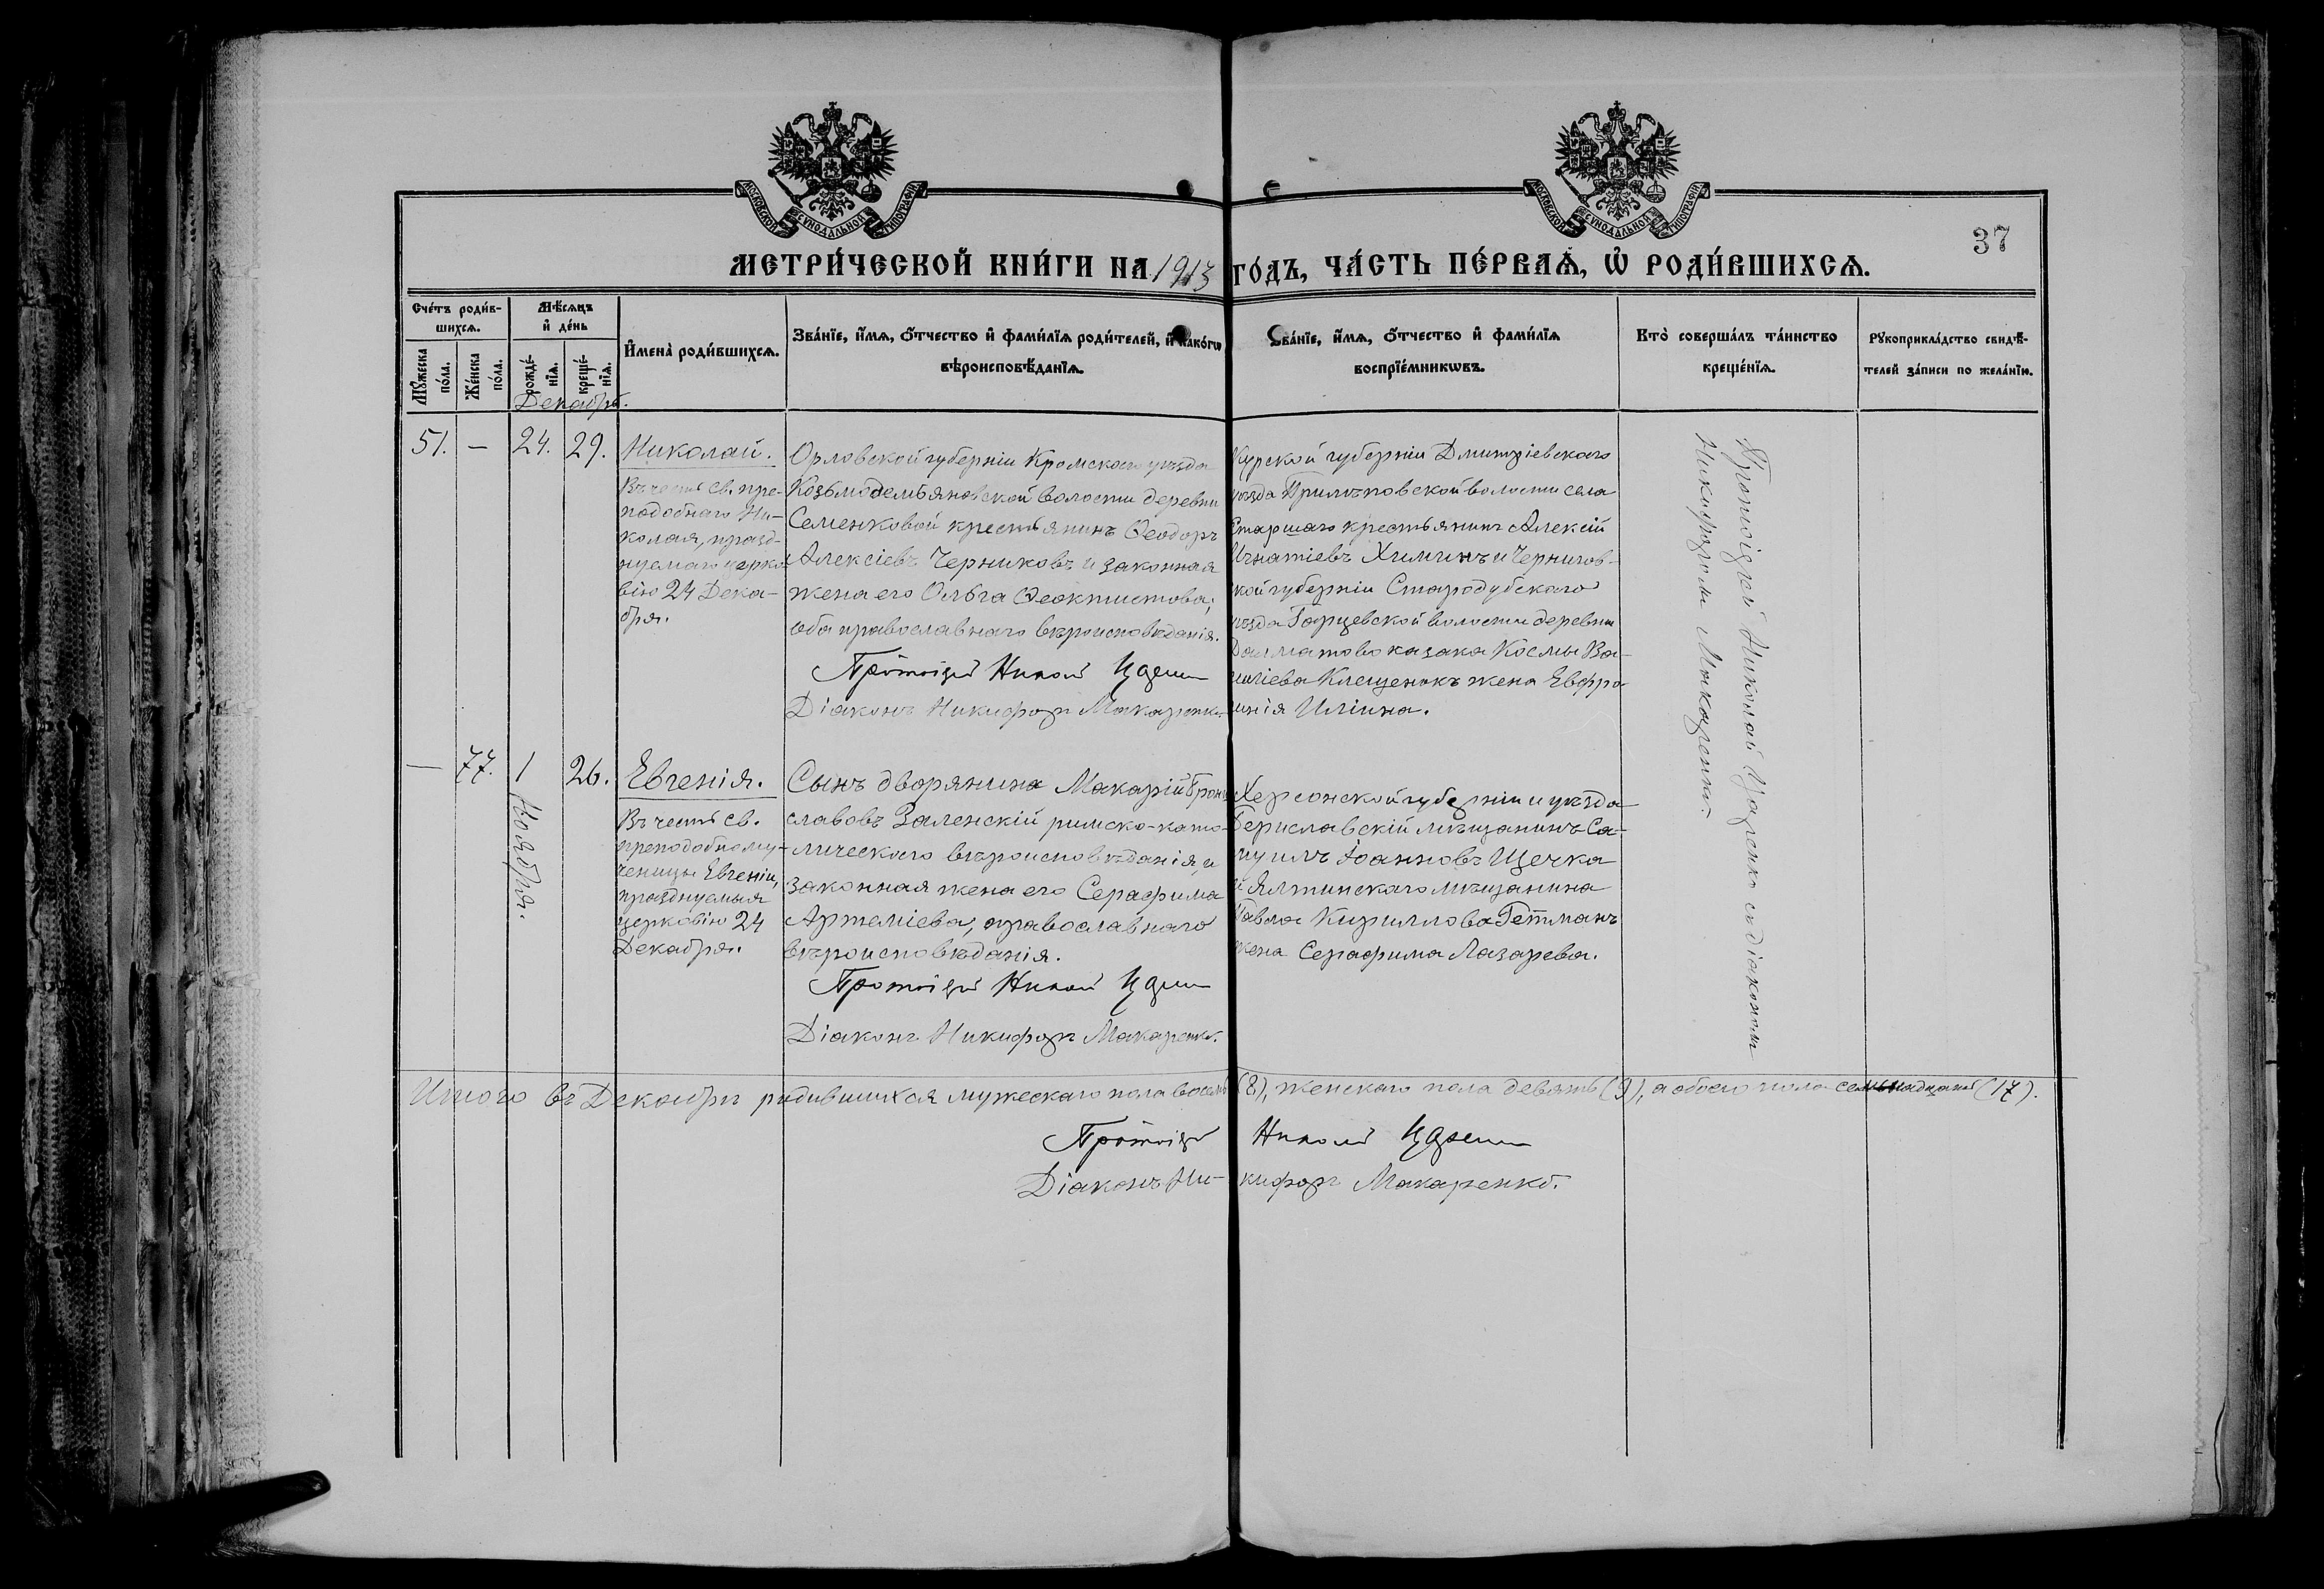 МОСКОВСКОЙ СѴНОДАЛЬНОЙ ТИПОГРАФІИ
МОСКОВСКОЙ СѴНОДАЛЬНОЙ ТИПОГРАФІИ
37
МЕТРИ́ЧЕСКОЙ КНИ́ГИ НА 1913 ГО́ДЪ, ЧА́СТЬ ПЕ́РВАѦ, Ѡ҆ РОДИ́ВШИХСѦ.
Сче́тъ роди́в-
шихсѧ.
Мꙋ́жеска
по́ла.
Же́нска
по́ла.
Мѣ́сѧцъ
и҆ де́нь
рожде́-
нїѧ.
креще́-
нїѧ.
Декабрь.
И҆мена̀ роди́вшихсѧ.
Зва́нїе, и҆́мѧ, ѻ҆́тчество и҆ фами́лїѧ роди́телей, и҆ како́гѡ
вѣроисповѣ́данїѧ.
Зва́нїе, и҆́мѧ, ѻ҆́тчество и҆ фами́лїѧ
воспрїе́мникѡвъ.
Кто̀ соверша́лъ та́инство
креще́нїѧ.
Рꙋкоприкла́дство свидѣ́-
телей за́писи по жела́нїю.
51. — 24. 29. Николай.
Въ честь св. пре-
подобнаго Ни-
колая, празд-
нуемаго церко-
вію 24 Дека-
бря.
Орловской губерніи Кромскаго уѣзда
Козьмодемьяновской волости деревни
Семенковой крестьянинъ Ѳеодоръ
Алексіевъ Черниковъ и законная
жена его Ольга Ѳеоктистова,
оба православнаго вѣроисповѣданія.
Протоіерей Николай
Діаконъ Никифоръ Макаренко.
Курской губерніи Дмитріевскаго
уѣзда волости села
Старшаго крестьянинъ Алексій
Игнатіевъ Химинъ и Чернигов-
ской губерніи Стародубскаго
уѣзда Гарцевской волости деревни
казака Космы Ва-
силіева Клещенокъ жена Евфро-
синія Иліина.
Протоіерей Николай съ діакономъ
Никифоромъ Макаренко.
— 77. 1 Ноября. 26. Евгенія.
Въ честь св.
преподобному-
ченицы Евгеніи,
празднуемыя
церковію 24
Декабря.
Сынъ дворянина Макарій Брони-
славовъ Заленскій римско-като-
лическаго вѣроисповѣданія, и
законная жена его Серафима
Артеміева, православнаго
вѣроисповѣданія.
Протоіерей Николай
Діаконъ Никифоръ Макаренко.
Херсонской губерніи и уѣзда
Бериславскій мѣщанинъ Са-
муилъ Іоанновъ Щечка
и Ялтинскаго мѣщанина
Павла Кириллова Гетманъ
жена Серафима Лазарева.
Итого въ Декабрѣ родившихся мужескаго пола восемь (8), женскаго пола девять (9), а обоего пола семьнадцать (17).
Протоіерей Николай
Діаконъ Ни- кифоръ Макаренко.